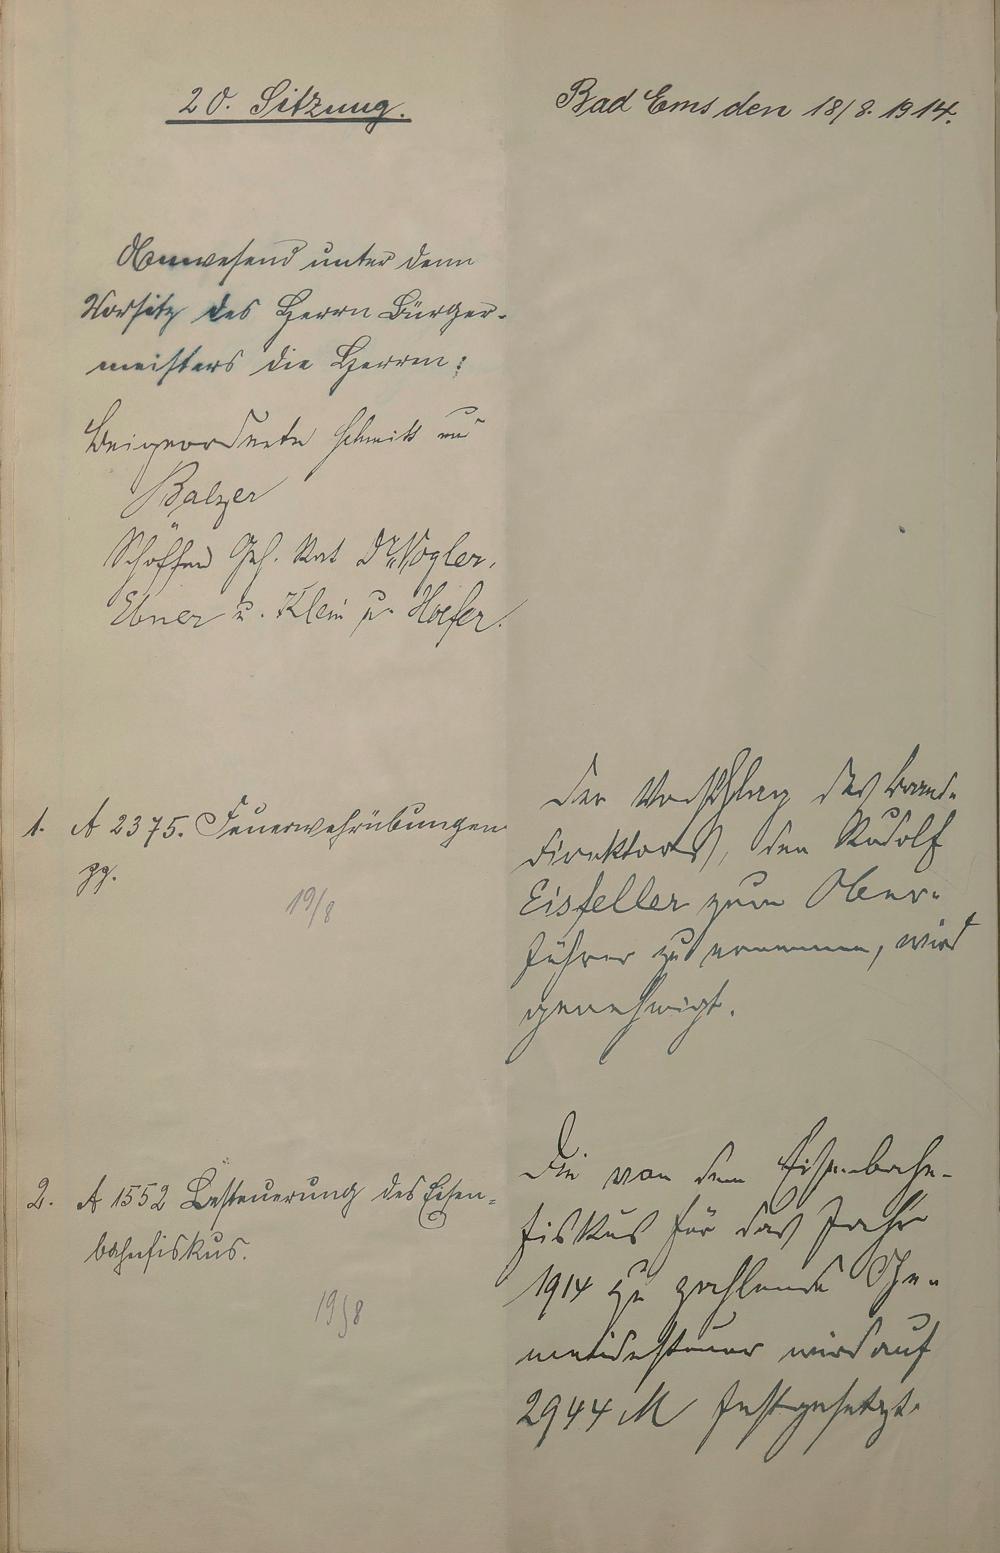 20. Sitzung.
Bad Ems den 18/8. 1914.
Anwesend unter dem
Vorsitz des Herrn Bürger-
meisters die Herren:
Beigeordnete Schmitt und
Balzer
Schöffen Geh. Rat Dr. Vogler,
Ebner u. Klein u. Hoefer.
1. A 2375. Feuerwehrübungen
pp.
19/8
Der Vorschlag des Brand-
direktors, den Rudolf
Eisfeller zum Ober-
führer zu ernennen, wird
genehmigt.
2. A 1552 Besteuerung des Eisen-
bahnfiskus.
19/8
Die von dem Eisenbahn-
fiskus für das Jahr
1914 zu zahlende Ge-
meindesteuer wird auf
2944 M festgesetzt.